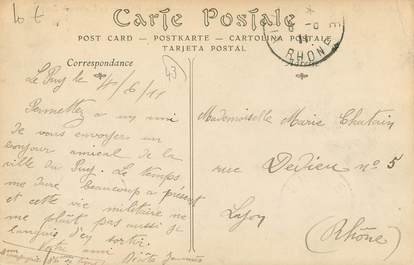 Carte Postale
POST CARD — POSTKARTE — CARTOLINA POSTALE
TARJETA POSTAL
Correspondance
RHONE
43
Le Puy le 4/6/11
Permettez a un ami
de vous envoyer un
bonjour amical de la
ville du Puy. Le temps
me dure beaucoup a présent
et cette vie militaire ne
me plait pas aussi je
languis d'en sortir.
Votre ami
Mademoiselle Marie Chatain
rue Dedieu n° 5
Lyon
(Rhône)